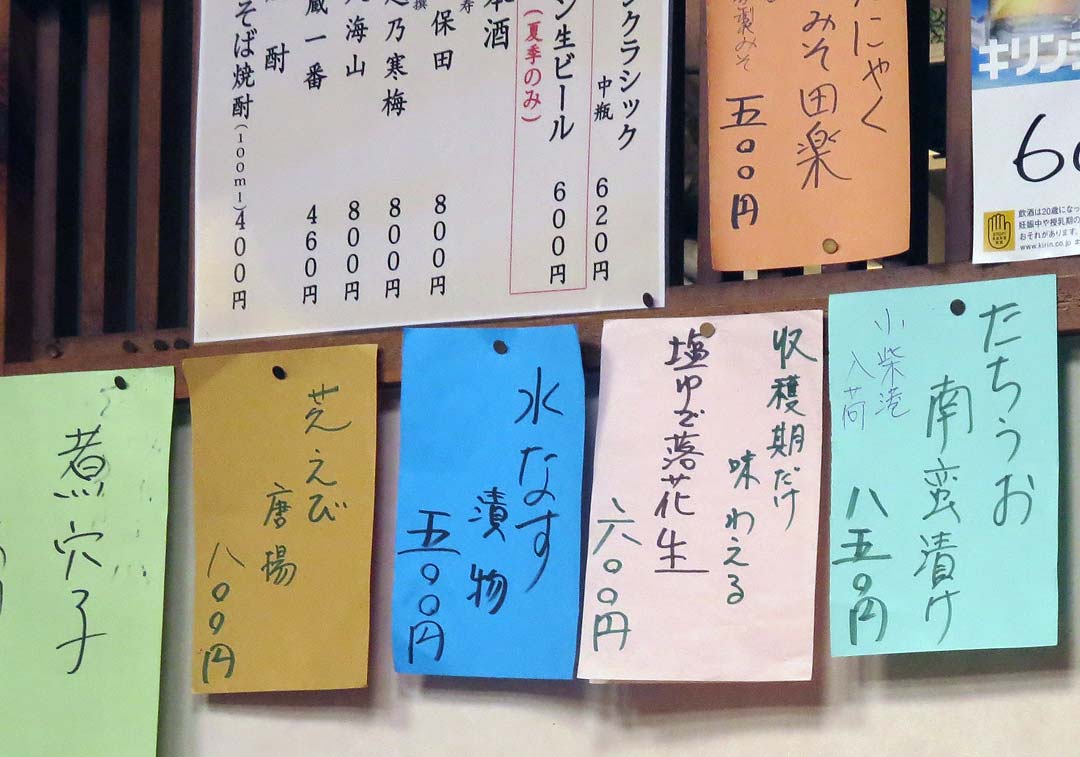 ンクラシック 中瓶 620円
ン生ビール 600円
(夏季のみ)
本酒
保田 800円
乃寒梅 800円
海山 800円
蔵一番 460円
酎
そば焼酎(100ml) 400円
にゃく
みそ田楽
製みそ
五〇〇円
キリン
飲酒は20歳になっ
妊娠中や授乳期の
おそれがあります。
www.kirin.co.jp
たちうお
南蛮漬け
小柴港
入荷
八五〇円
収穫期だけ
味わえる
塩ゆで落花生
六〇〇円
水なす
漬物
五〇〇円
芝えび
唐揚
八〇〇円
煮穴子